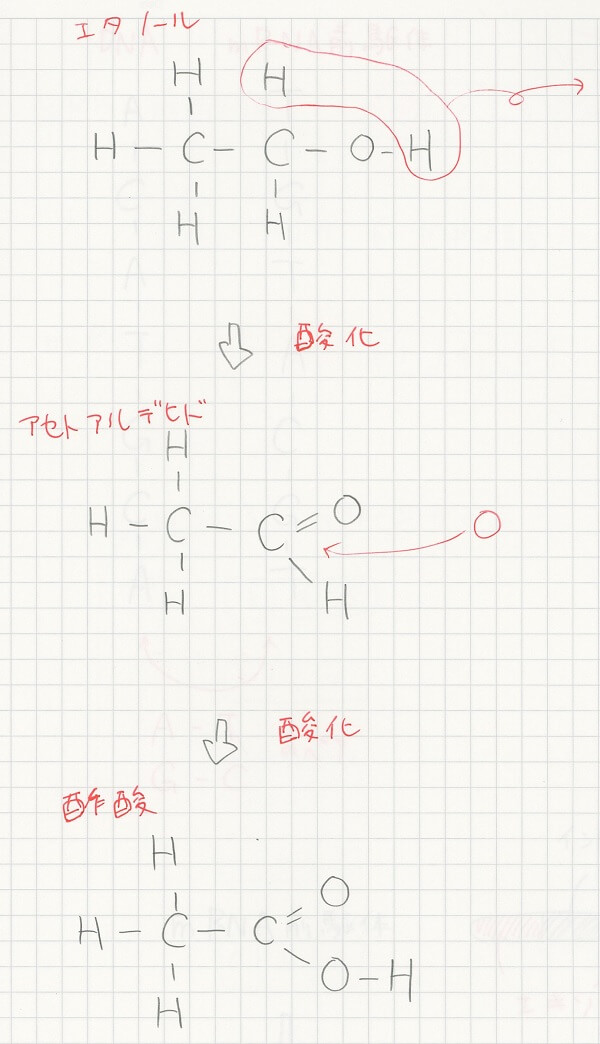 エタノール
H H
H - C - C - O - H
H H
酸化
アセトアルデヒド
H
H - C - C = O
O
H H
酸化
酢酸
H
O
H - C - C =
O - H
H